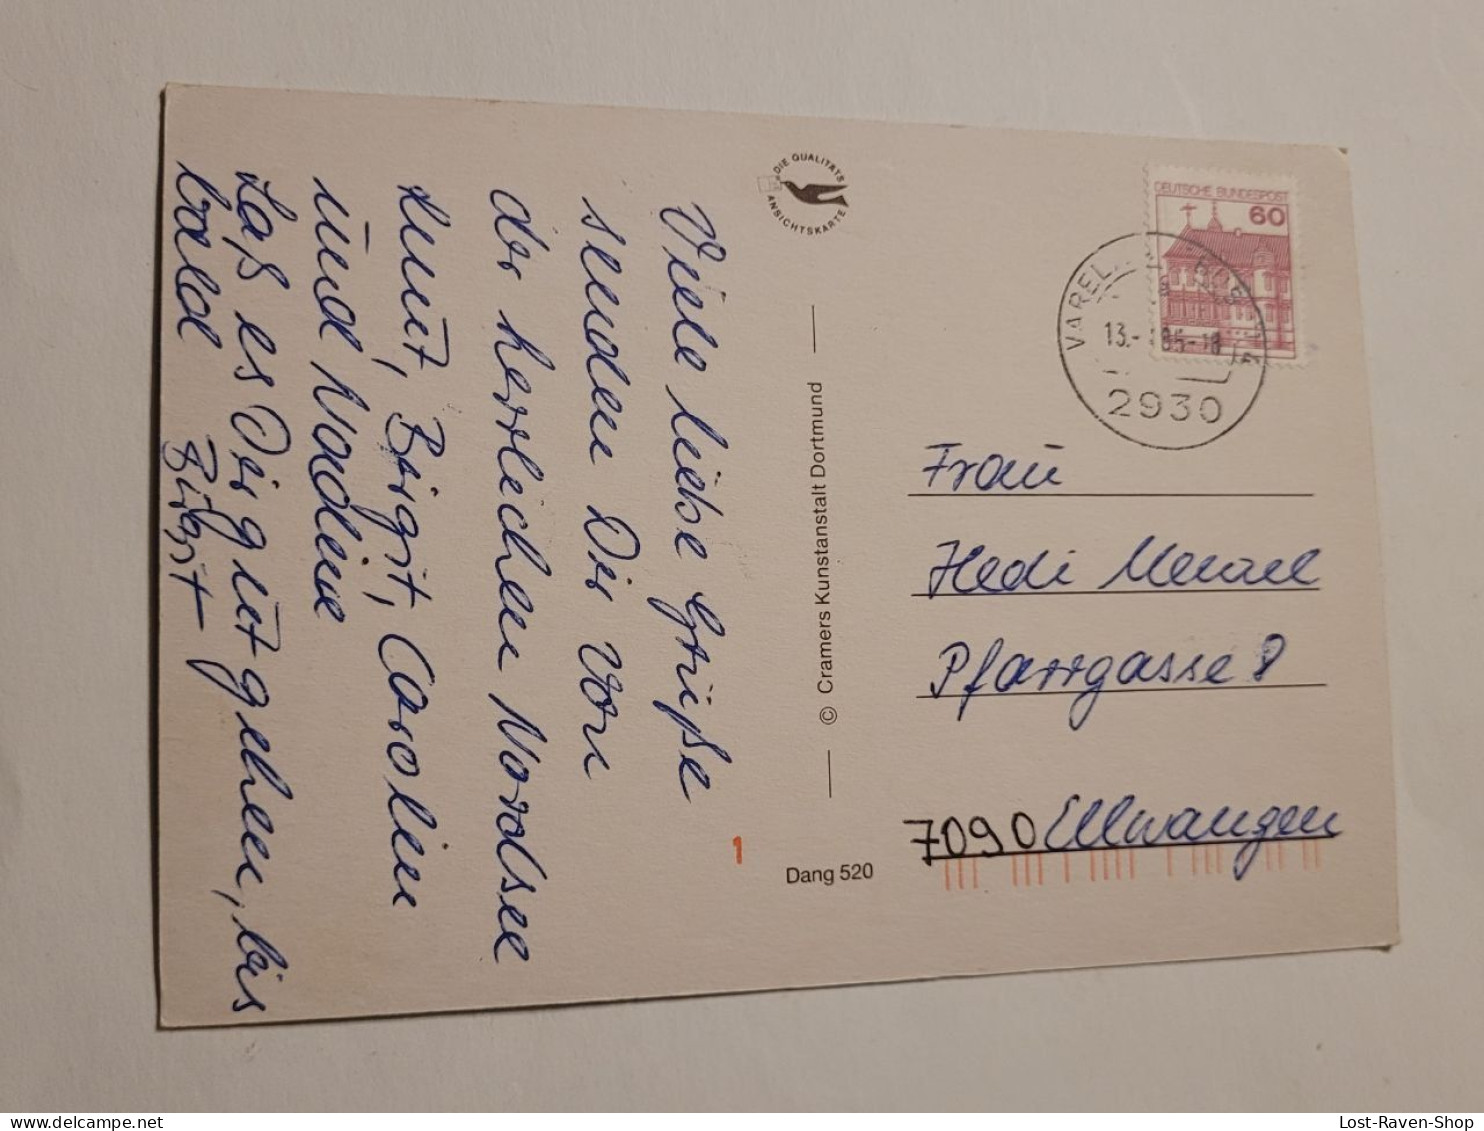 Viele liebe Grüße
senden Dir von
der herrlichen Nordsee
Knut, Birgit, Carolin
und Nadine
Laß es Dir gut gehen, bis
bald Birgit
DIE QUALITÄTS
ANSICHTSKARTE
© Cramers Kunstanstalt Dortmund
Dang 520
1
DEUTSCHE BUNDESPOST
60
VAREL
13.- 85-18
2930
Frau
Hedi
Pfarrgasse 8
7090 Ellwangen
Lost-Raven-Shop